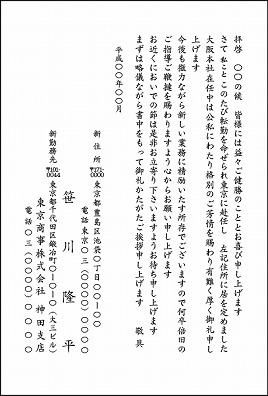 拝啓　〇〇の候　皆様には益々ご健勝のこととお喜び申し上げます
さて 私ことこのたび転勤を命ぜられ東京に赴任し　左記住所に居を定めました
大阪本社在任中は公私にわたり格別のご芳情を賜わり有難く厚く御礼申し
上げます
今後も微力ながら新しい業務に精励いたす所存でございますので何卒倍旧の
ご指導ご鞭撻を賜わりますよう心からお願い申し上げます
お近くにおいでの節は是非お立寄り下さいますようお待ち申し上げます
まずは略儀ながら書中をもって御礼かたがたご挨拶申し上げます　敬 具
平成〇〇年〇〇月
新 住 所　〒171-0000　東京都豊島区池袋〇丁目〇〇-〇〇
電話 東京 〇三（〇〇〇〇）〇〇〇〇
笹 川 隆 平
新勤務先　〒101-0044　東京都千代田区鍛冶町〇-〇-〇（大三ビル）
東京商事株式会社 神田支店
電話 〇三（〇〇〇〇）〇〇〇〇